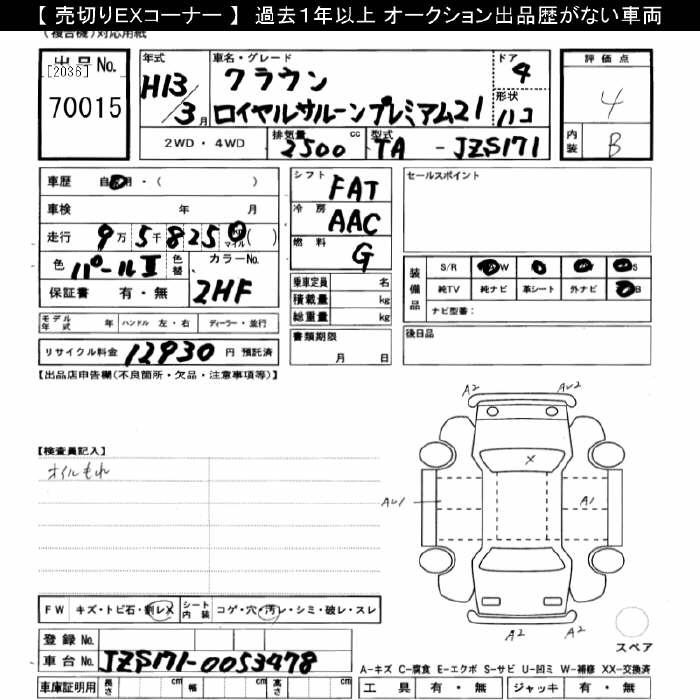 【 売切りEXコーナー 】 過去1年以上 オークション出品歴がない車両
(複合機)対応用紙
出品No.
[2036]
70015
年式
H13/3月
車名・グレード
クラウン
ロイヤルサルーンプレミアム21
ドア
4
形状
ハコ
評価点
4
内装
B
2WD・4WD
排気量 2500 cc
型式 TA - JZS171
車歴 自 用・( )
車検 年 月
走行 9万5千8250 マイル( )
色 パールII
色替
カラーNo.
2HF
保証書 有・無
シフト FAT
冷房 AAC
燃料 G
乗車定員 名
積載量 kg
総重量 kg
書類期限
月 日
セールスポイント
装備品
S/R W S
純TV 純ナビ 革シート 外ナビ B
ナビ型番:
後日品
モデル年式 年 ハンドル 左・右 ディーラー・並行
リサイクル料金 12930 円 預託済
【出品店申告欄(不良箇所・欠品・注意事項等)】
【検査員記入】
オイルもれ
A2 AU2
X
AU1 A1
A2 A2
スペア
FW キズ・トビ石・割レX シート内装 コゲ・穴・汚レ・シミ・破レ・スレ
登録No.
車台No. JZS171-0053478
A-キズ C-腐食 E-エクボ S-サビ U-凹ミ W-補修 XX-交換済
車庫証明用 長さ cm 幅 cm 高さ cm
工具 有・無 ジャッキ 有・無